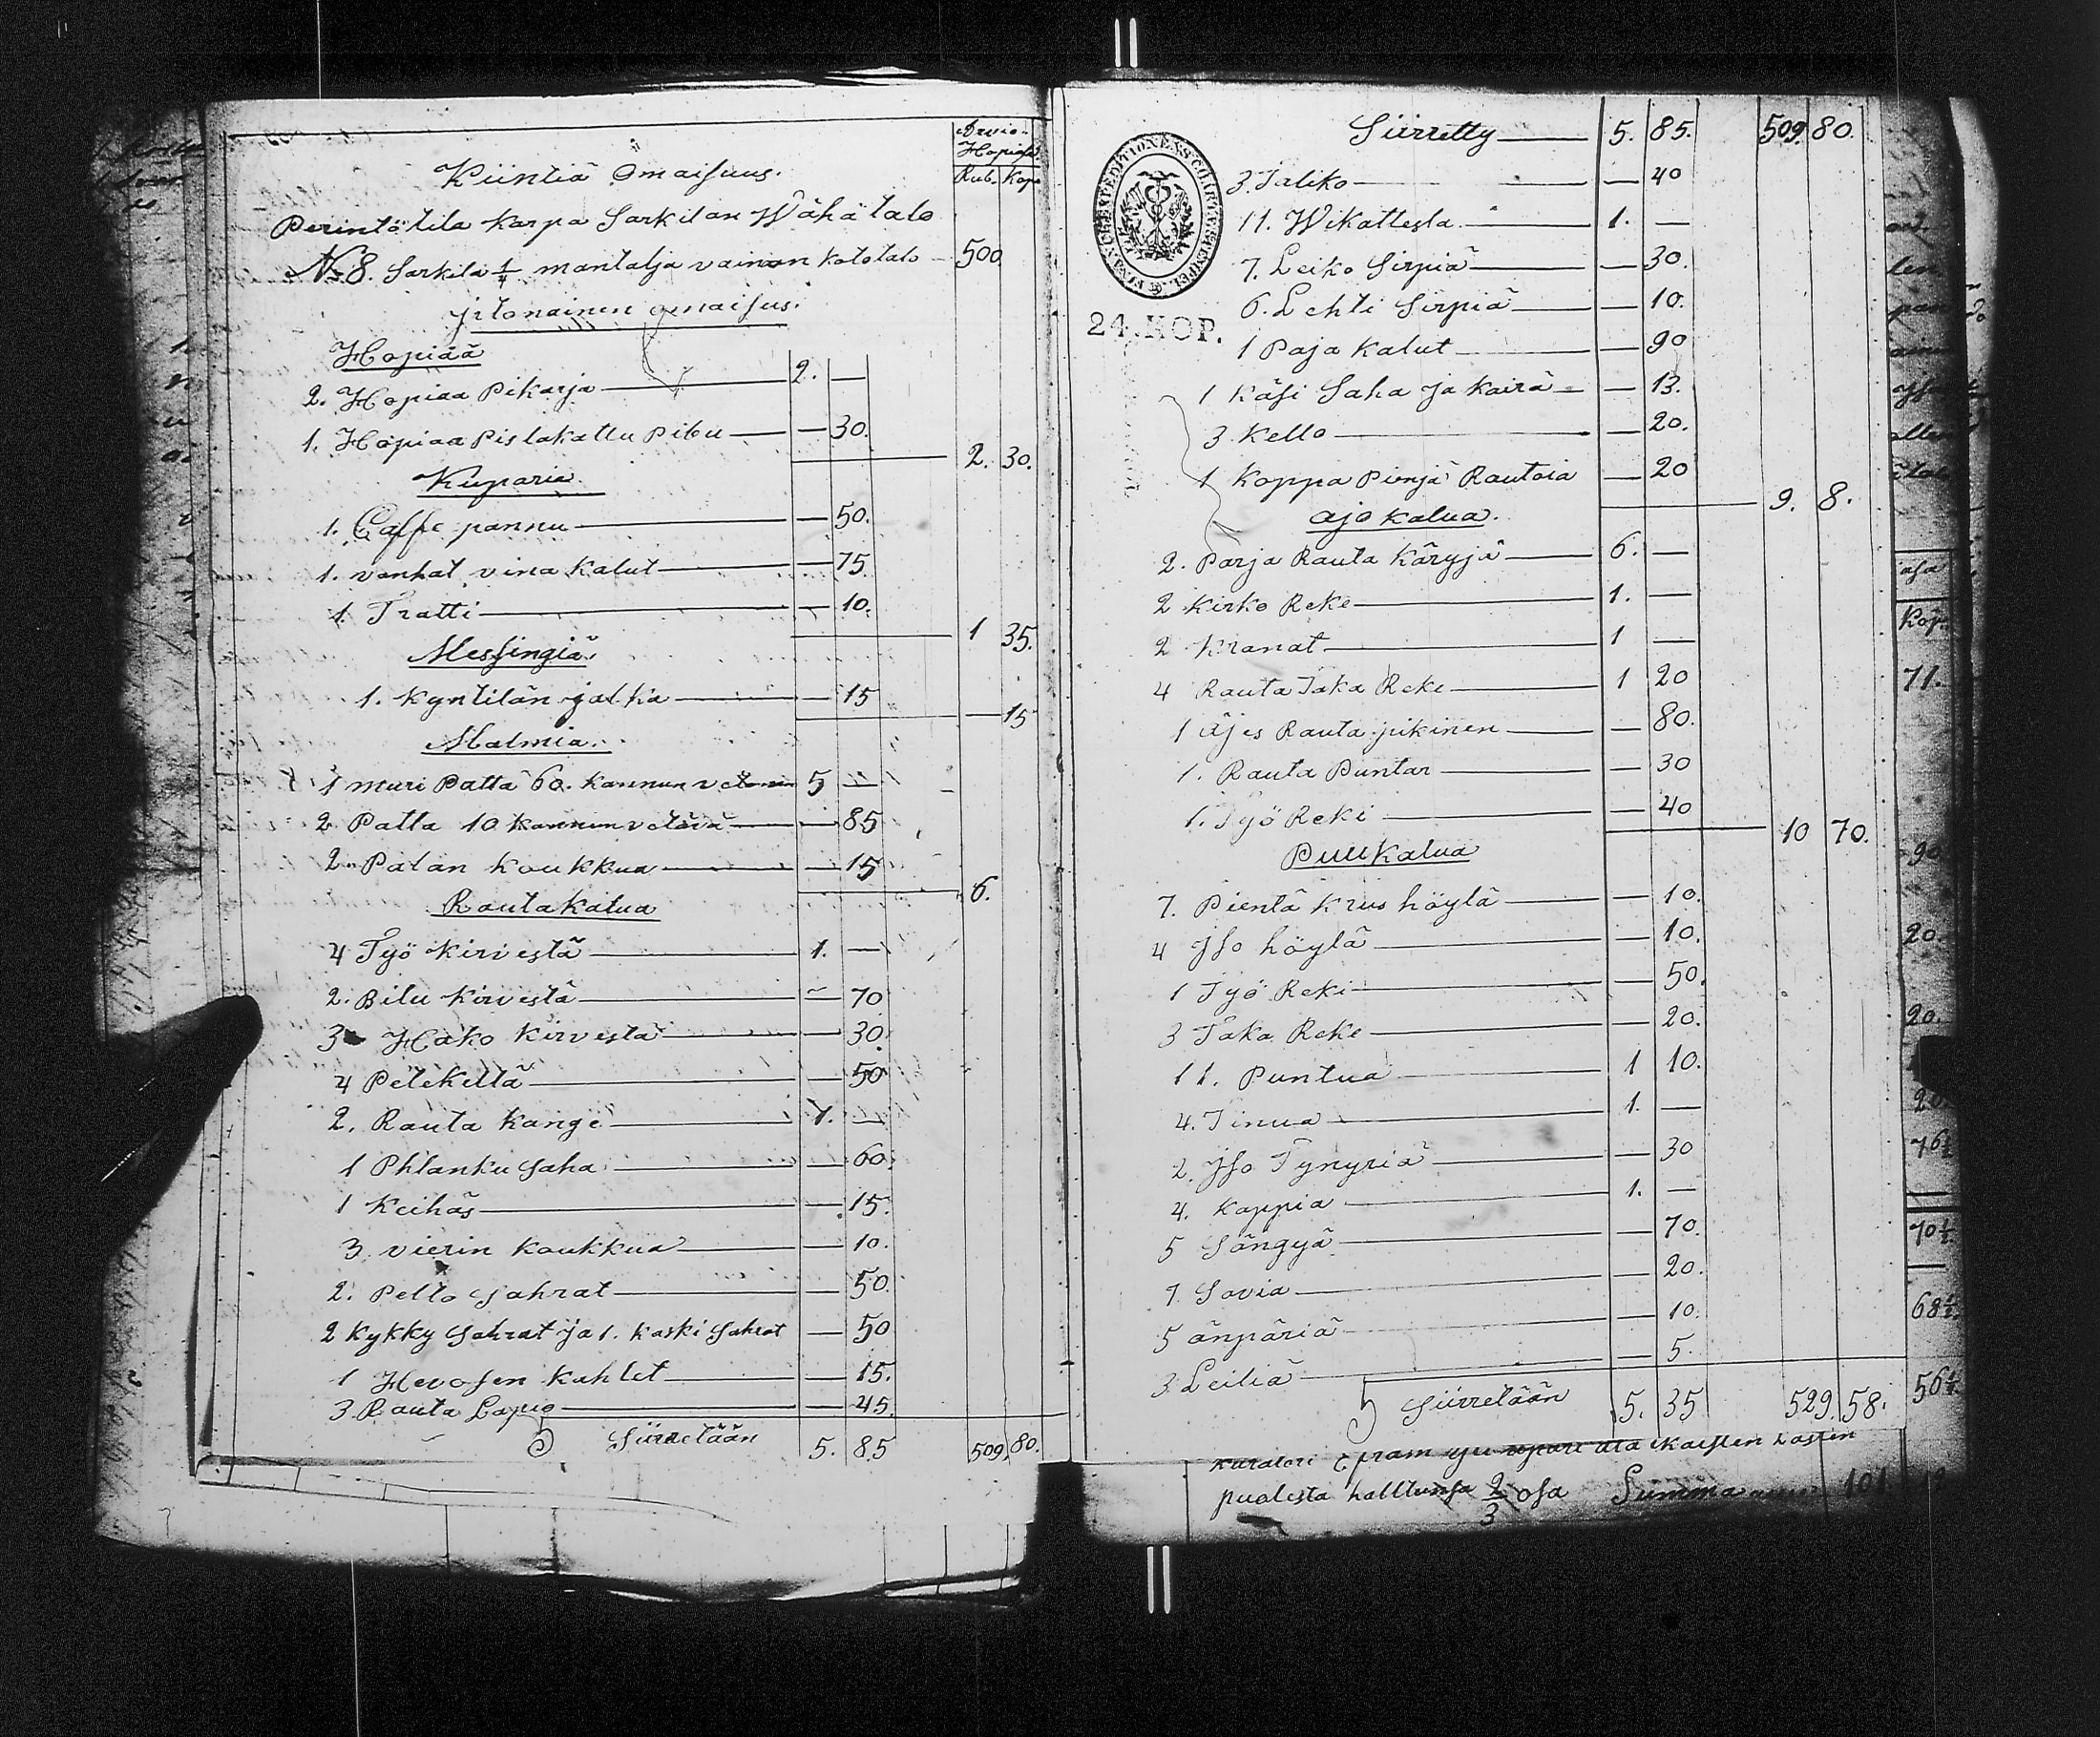 Arvio-
Hopiasa
Rub. Kop.
Kiintiä Omaisuus.
Perintötila Karpa Sarkilan Wähätalo
№ 8. Sarkila 1/4 mantalja vainan kototalo — 500.
jrtonainen omaisus.
Hopiaa
2. Hopiaa Pikarja — 2. —
1. Hopiaa Pislakattu Pibu — — 30.
2. 30.
Kuparia
1. Caffe pannu — — 50.
1. vanhat vina kalut — — 75.
1. Tratti — — 10.
1 35.
Messingiä
1. Kyntilän jalka — — 15
— 15
Malmia.
1 muri Patta 60. kannun vetävä 5 —
2 Patta 10 kannun vetävä — — 85
2 Patan koukkua — — 15
6.
Rautakalua
4 Työ kirvestä — 1. —
2. Bilu kirvestä — — 70
3 Hako kirvesta — — 30.
4 Petkeltä — — 50
2. Rauta kange — 1. —
1 Phlanku saha — — 60.
1 Keihäs — — 15.
3. vierin koukkua — — 10.
2. Pelto sahrat — — 50.
2 Kykky sahrat ja 1. kaski sahrat — 50
1 Hevosen kahlet — — 15.
3. Rauta Lapio — — 45.
Siirretään 5. 85 509. 80.
Siirretty — 5. 85. 509. 80.
FINANCE EXPEDITIONENS CHARTÆ STEMPEL
24. KOP.
3. Taliko — — 40
11. Wikattesta — 1. —
7. Leiko Sirpiä — — 30.
6. Lehti Sirpiä — — 10.
1 Paja kalut — — 90
1 Käsi Saha ja kairä — — 13.
3 Kello — — 20.
1 Koppa Pienjä Rautoia — 20
9. 8.
ajo kalua.
2. Parja Rauta Käryjä — 6. —
2 Kirko Reke — 1. —
2 Kranat — 1 —
4 Rauta Taka Reke — 1 20
1 äjes Rauta piikinen — — 80.
1. Rauta Puntar — — 30
1. Työ Reki — — 40
10 70.
Puukalua
7. Pientä krus höylä — — 10.
4 Jso höylä — — 10.
1 Työ Reki — — 50.
3 Taka Reke — — 20.
11. Puntua — 1 10.
4. Tinua — 1. —
2. Jso Tynyriä — — 30
4. Kappia — 1. —
5 Sängyä — — 70.
7 Sovia — — 20.
5 änpäriä — — 10.
3. Leiliä — — 5.
Siirretään 5. 35 529. 58.
puolesta 2/3 osa Summa 101
Kop.
71.
90
20.
20.
20
76 1/2
70 1/2
68 1/2
56 1/2